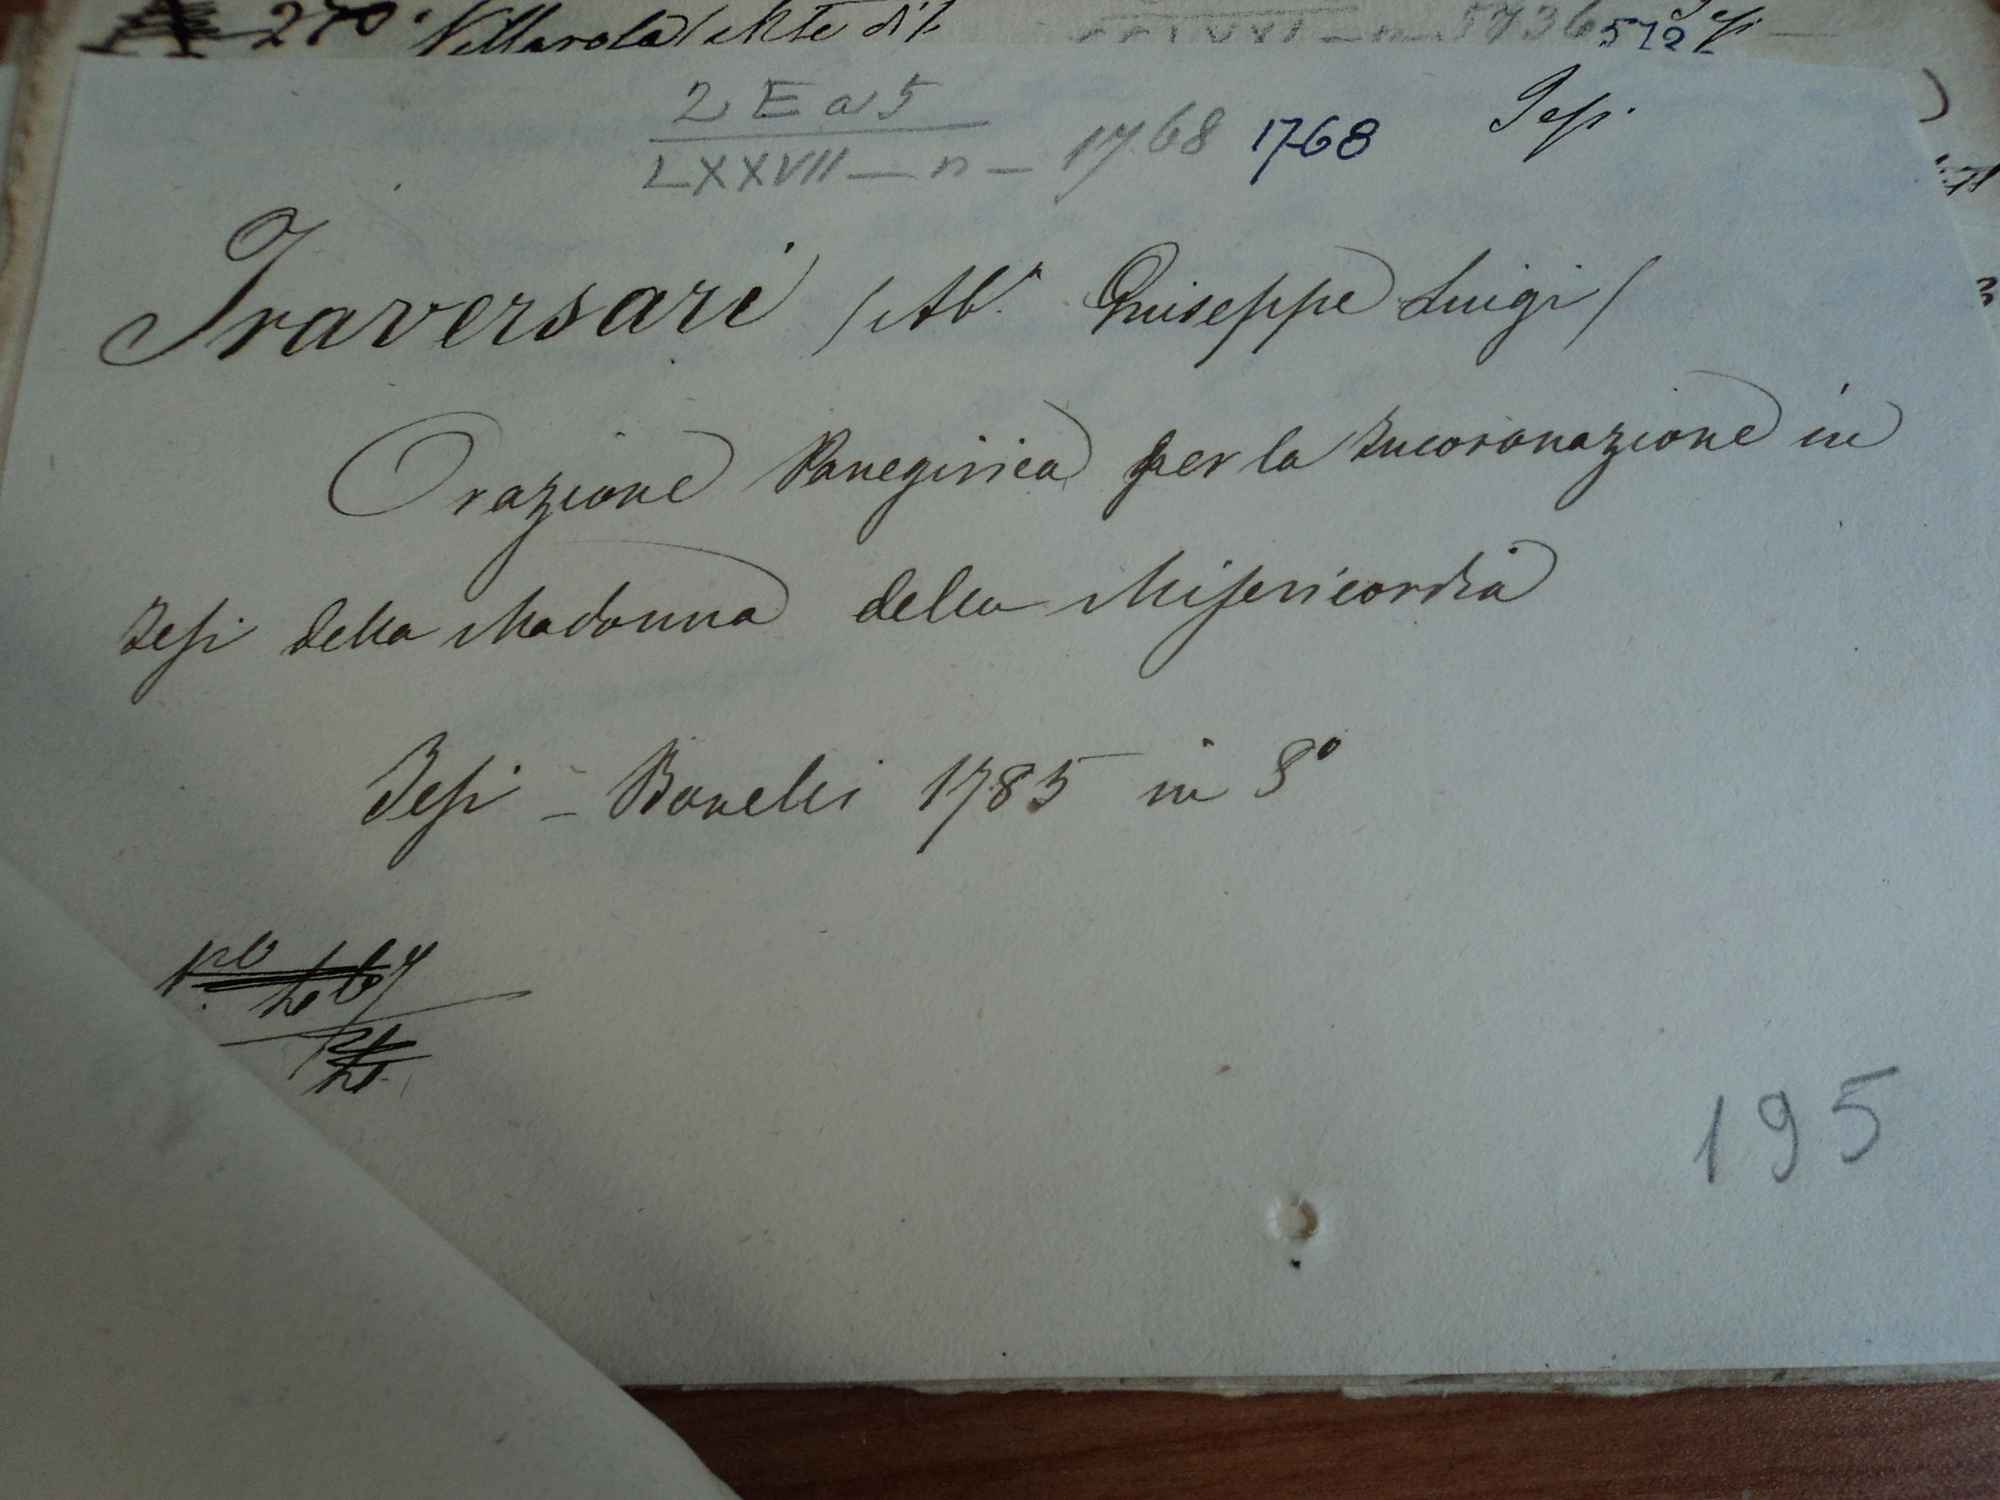 270. Villarola (Mte di
5736 572 Jesi
2 E a 5
LXXVII — n — 1768 1768 Jesi.
Traversari (Ab.e Giuseppe Luigi)
Orazione Panegirica per la Incoronazione in
Jesi della Madonna della Misericordia
Jesi - Bonelli 1785 in 8°
195